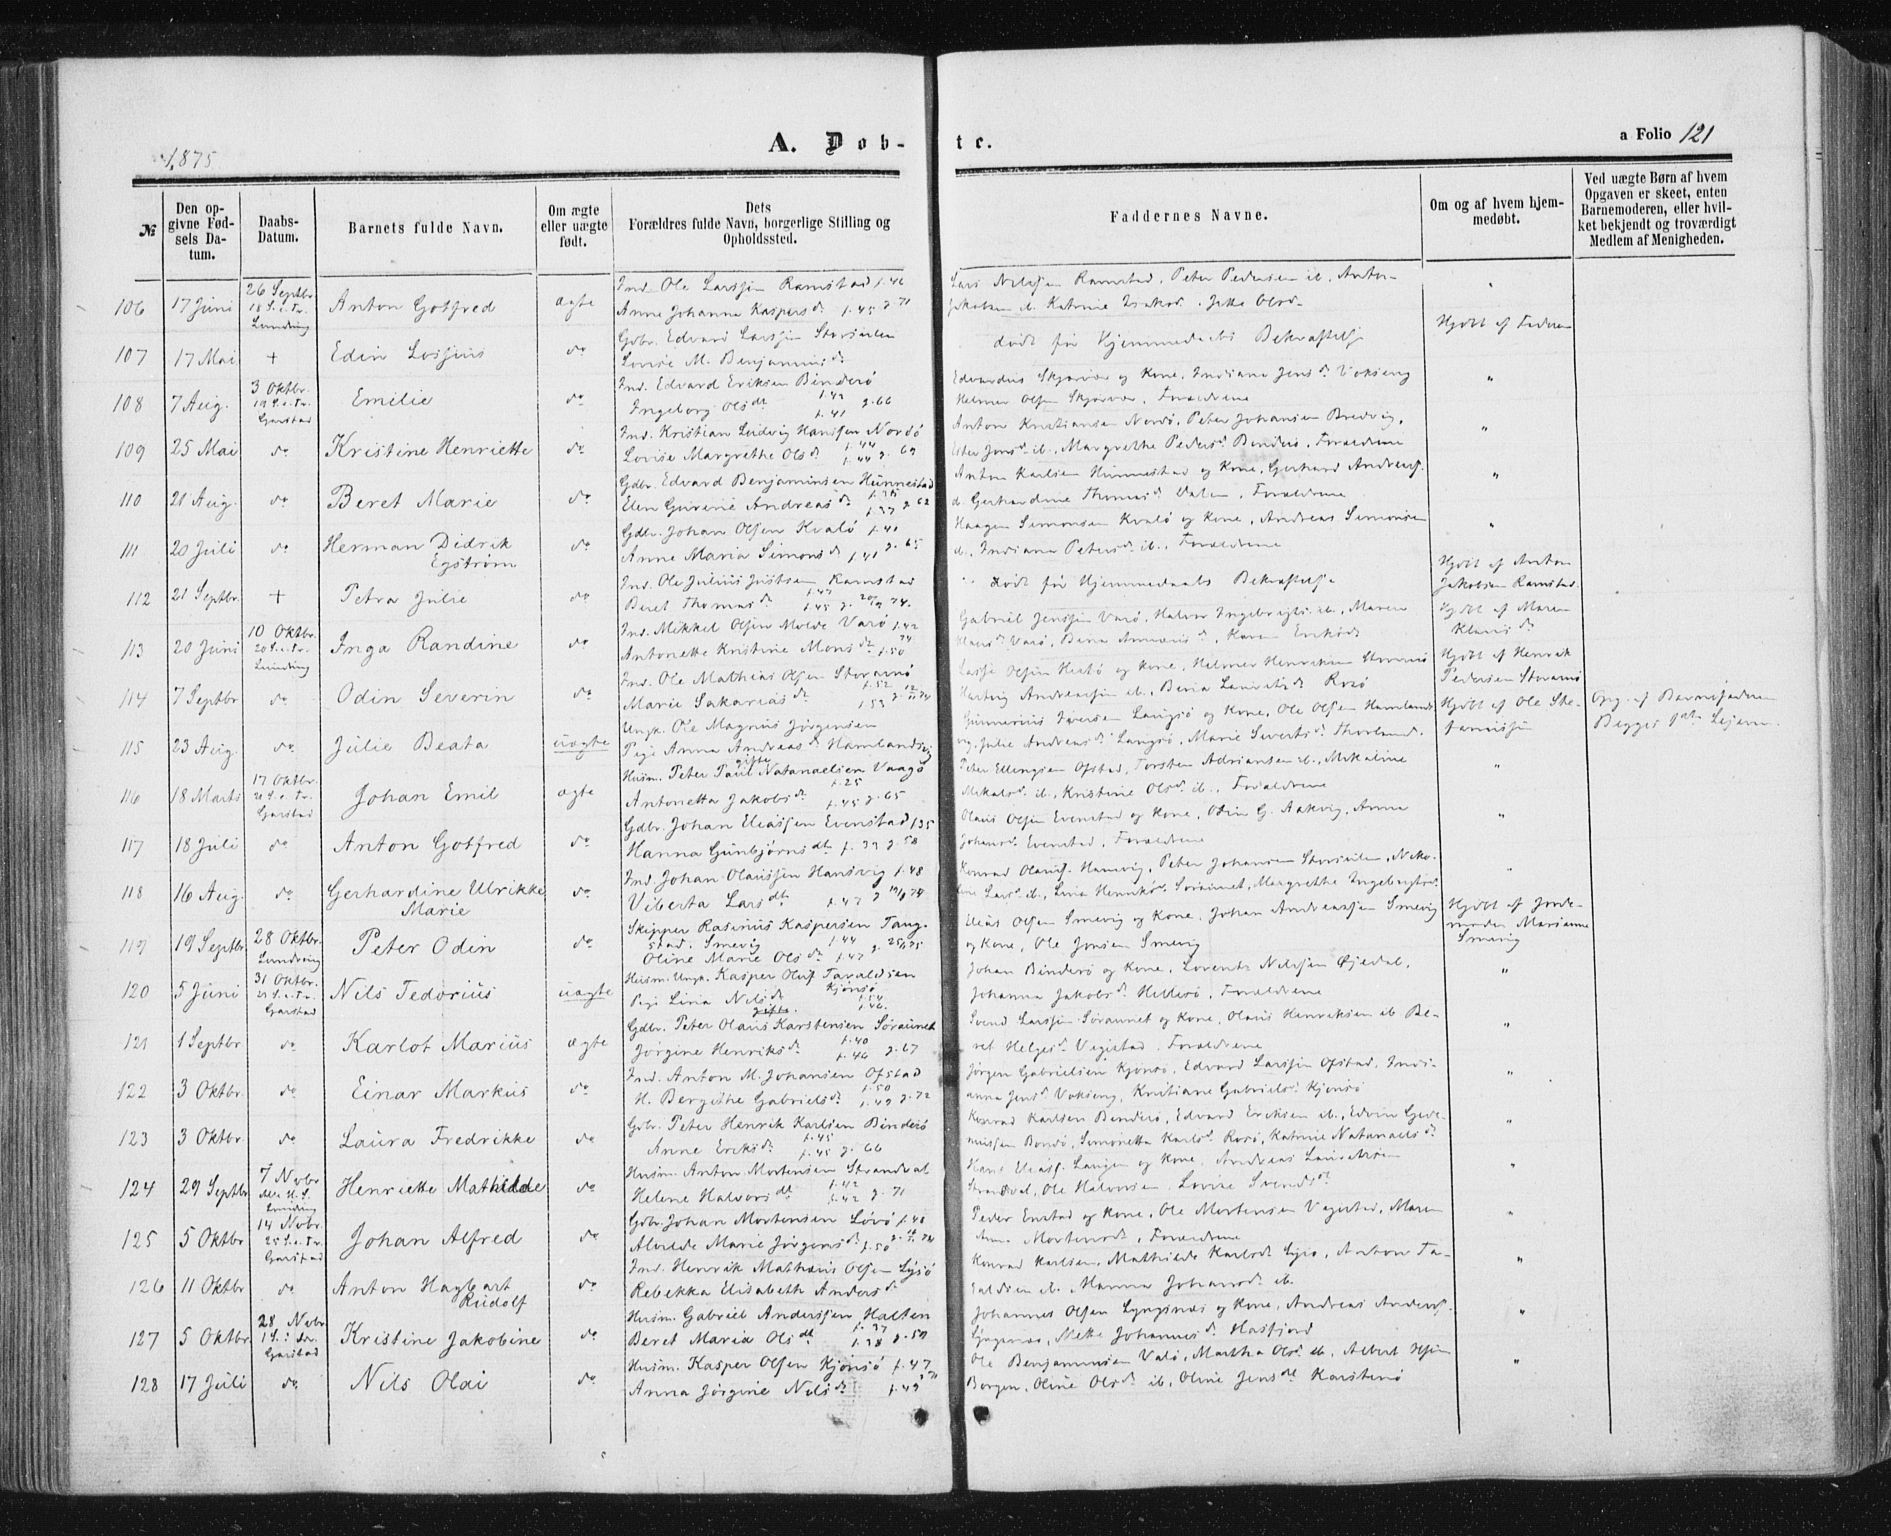 1875
A. Døb-
te.
a Folio 121
№
Den op-
givne Fød-
sels Da-
tum.
Daabs-
Datum.
Barnets fulde Navn.
Om ægte
eller uægte
født.
Dets
Forældres fulde Navn, borgerlige Stilling og
Opholdssted.
Faddernes Navne.
Om og af hvem hjem-
medøbt.
Ved uægte Børn af hvem
Opgaven er skeet, enten
Barnemoderen, eller hvil-
ket bekjendt og troværdigt
Medlem af Menigheden.
106 17 Juni 26 Septbr. 18 S. e. Tr. Anton Gotfred ægte Ind. Ole Larssen Ramstad f. 46
Anne Johanna Kaspersd. f. 45 g. 71
Lars Nilssen Ramstad, Peter Pedersen ib, Anton
Jakobsen ib, Katrine
107 17 Mai + Edin Lossius do Gdbr. Edvard Larssen Storsulen
Lovise M. Benjaminsd.
død før Hjemmedaabs Bekræftelse
Hjdbt af Faderen
108 7 Aug. 3 Oktbr. 19 S. e. Tr. Garstad Emilie do Ind. Edvard Eriksen Binderø f. 42
Ingeborg Olsdt f. 41 g. 66
Edvardus Skjærvær og Kone, Indiana Jensd. Vokseng
Helmer Olsen Skjærvær, Forældrene
109 25 Mai do Kristine Henriette do Ind. Kristian Ludvig Hanssen Nordø f. 44
Lovise Margrethe Olsd. f. 44 g. 69
Anton Kristiansen Nordø, Peter Johansen Bredvig,
Ester Jensd. ib, Margrethe Pedersd. Binderø, Forældrene
110 21 Aug. do Beret Marie do Gdbr. Edvard Benjaminsen Hunnestad f. 35
Elen Gurine Andreasd. f. 37 g. 62
Anton Karlsen Hunnestad og Kone, Gerhard Andreass.
Gerhardine Thomasd. Valen, Forældrene
111 20 Juli do Herman Didrik
Egstrøm do Gdbr. Johan Olsen Kvalø f. 40
Anne Maria Simonsd. f. 41 g. 65
Haagen Simonsen Kvalø og Kone, Andreas Simonsen
ib, Indiana Petersd. ib., Forældrene
112 21 Septbr. + Petra Julie do Ind. Ole Julius Justsen Ramstad f. 47
Beret Thomasd. f. 45 g. 74.
død før Hjemmedaabs Bekræftelse
Hjdbt af Anton
Jakobsen Ramstad
113 20 Juni 10 Oktbr. 20 S. e. Tr. Inga Randine do Ind. Mikkel Olsen Molde Varø f. 42
Antonette Kristine Monsd. f. 50 74
Gabriel Jenssen Varø, Halvor Ingebrigts. ib, Maren
Klausd. Varø, Beria
Hjdbt af Maren
Klausd.
114 7 Septbr. do Odin Severin do Ind. Ole Mathias Olsen Storarnø f. 52
Marie Sakariasd. f. 53
Lasse Olsen og Kone, Helmer Henriksen
Hartvig Andreassen ib, Rosø
Hjdbt af Henrik
Pedersen Storarnø
115 23 Aug. do Julie Beata uægte Ungk. Ole Magnus Jørgensen
Pige Anna Andreasd. Hamlandsvig
Gunnerius Iversen Langsø og Kone, Ole Olsen Hamlands-
vig, Julie Andreasd. Langsø, Marie Sivertsd.
Hjdbt af Ole Ste-
fanussen
Opg. af Barnefaderen
Begges 1ste Leierm.
116 18 Marts 17 Oktbr. 21 S. e. Tr. Garstad Johan Emil ægte Husm. Peter Paul Natanaelsen Vaagø f. 25
gifte
Antonetta Jakobsd. f. 45 g. 65
Peter Ellingsen Ofstad, Torsten Adriansen ib., Mekaline
Mekalsd. ib, Kristine Olsd. ib., Forældrene
117 18 Juli do Anton Gotfred do Gdbr. Johan Eliassen Evenstad f. 35
Hanna Gunbjørnsdt f. 33 g. 58
Olaus Olsen Evenstad og Kone, Odin G. Aakvig, Anna
Johansd. Evenstad, Forældrene
118 16 Aug. do Gerhardine Ulrikke
Marie do Ind. Johan Olaussen Hansvig f. 48
Viberta Larsdt f. 47 g. 74
Konrad Olauss. Hansvig, Peter Johansen Storsulen, Niko-
line Larsd. ib, Lina Henriksd. Søraunet, Margrethe Ingebrigtsd.
119 19 Septbr. 28 Oktbr. Peter Odin do Skipper Rasmus Kaspersen Tang-
stad, Smevig f. 44
Oline Marie Olsd. f. 47 g. 75
Elias Olsen Smevig og Kone, Johan Andreassen Smevig
og Kone, Ole Jensen Smevig
Hjdbt af Jorde-
moder Marianne
Smevig
120 5 Juni 31 Oktbr. Garstad Nils Tedorius uægte Husm. Ungk. Kasper Oluf Taraldsen
Kjønsø f. 54
Pige Lina Nilsd. f. 46
gifte.
Johan Binderø og Kone, Lorents Nilssen Øjedal,
Johanna Jakobsd. Hellesø, Forældrene
121 1 Septbr. do Karlot Marius ægte Gdbr. Peter Olaus Karstensen Søraunet f. 40
Jørgine Henriksd. f. 46 g. 67
Svend Larssen Søraunet og Kone, Olaus Henriksen ib Be-
ret Helgesd. Vagistad. Forældrene
122 3 Oktbr. do Einar Markus do Ind. Anton M. Johansen Ofstad f. 50
H. Bergithe Gabrielsd. f. 49 g. 72
Jørgen Gabrielsen Kjønsø, Edvard Larssen Ofstad, Indi-
anna Jensd. Vokseng, Kristiane Gabrielsd. Kjønsø
123 3 Oktbr. do Laura Fredrikke do Gdbr. Peter Henrik Karlsen Binderø f. 45
Anne Eriksd. f. 45 g. 66
Konrad Karlsen Binderø, Edvard Eriksen ib., Edvin
Bondø, Simonetta Karlsd. Rosø, Katrine Natanaelsd.
124 29 Septbr. 7 Novbr. Henriette Mathilde do Husm. Anton Mortensen Strandval f. 42
Helene Halvorsdt f. 42 g. 71
Hans Eliass. Langen og Kone, Andreas
Strandval, Ole Halvorsen, Lovise Svendsdt
125 5 Oktbr. 14 Novbr. 25 S. e. Tr. Garstad Johan Alfred do Gdbr. Johan Mortensen Løvø f. 48
Alvilde Marie Jørgensd. f. 50
Peder Enstad og Kone, Ole Mortensen Vagistad, Maren
Anna Mortensd., Forældrene
126 11 Oktbr do Anton Hagbart
Rudolf do Ind. Henrik Mathæus Olsen Lysø
Rebekka Elisabeth Andersd.
Konrad Karlsen, Mathilde Karlsd. Lysø, Anton Ta-
raldsen ib., Hanna Johansd. ib.
127 5 Oktbr. 28 Novbr. 1 S. i Adv. Garstad Kristine Jakobine do Husm. Gabriel Anderssen Halten f. 37
Beret Maria Olsdt f. 38 g. 59
Johannes Olsen Lyngsnæs og Kone, Andreas Anderss.
Lyngsnæs, Mette Johannesd. Hasfjord
128 17 Juli do Nils Olai do Husm. Kasper Olsen Kjønsø f. 47
Anna Jørgine Nilsd. f. 49 g. 71
Ole Benjaminsen Valø, Martha Olsd. ib, Albert
Borgen, Oline Olsd. ib, Oline Jensdt Karstenø